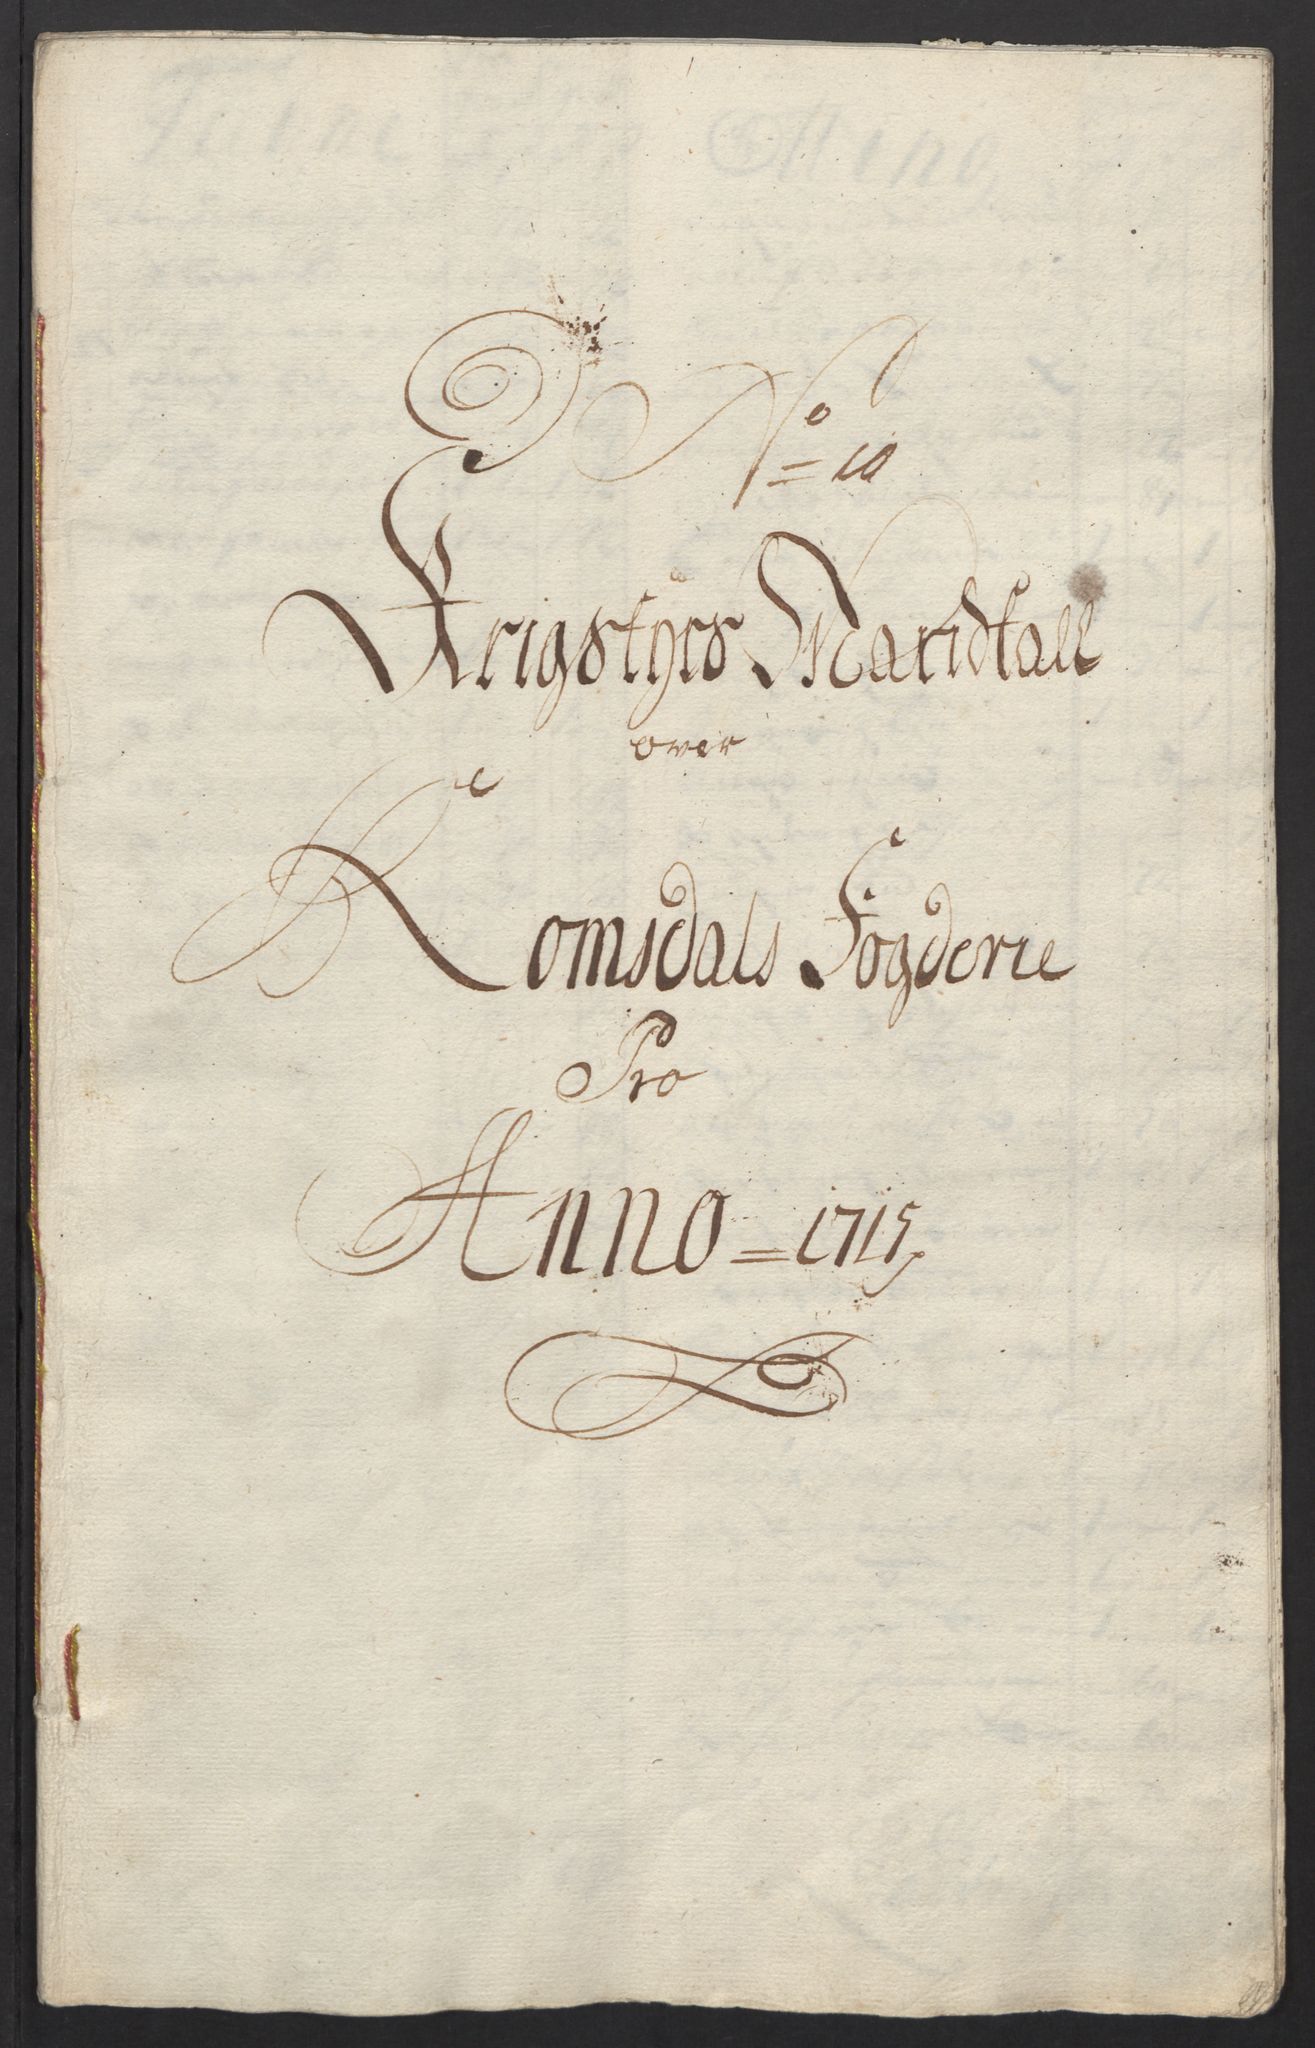 No = 10
Krigstyrs Mandtall
over
Romsdals Fogderie
Pro
Anno = 1715